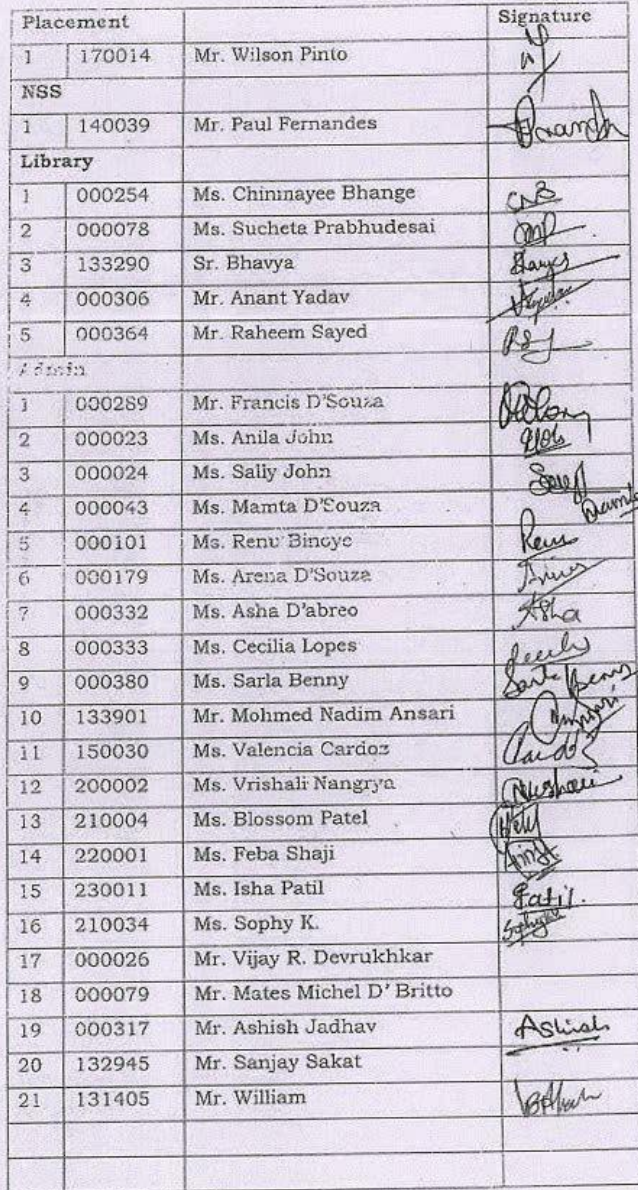 Placement Signature
1 170014 Mr. Wilson Pinto
NSS
1 140039 Mr. Paul Fernandes
Library
1 000254 Ms. Chinmayee Bhange
2 000078 Ms. Sucheta Prabhudesai
3 133290 Sr. Bhavya
4 000306 Mr. Anant Yadav
5 000364 Mr. Raheem Sayed
Admin
1 000289 Mr. Francis D'Souza
2 000023 Ms. Anila John
3 000024 Ms. Sally John
4 000043 Ms. Mamta D'Souza
5 000101 Ms. Renu Binoye Renu
6 000179 Ms. Arena D'Souza
7 000332 Ms. Asha D'abreo Asha
8 000333 Ms. Cecilia Lopes
9 000380 Ms. Sarla Benny Sarla Benny
10 133901 Mr. Mohmed Nadim Ansari Ansari
11 150030 Ms. Valencia Cardoz Cardoz
12 200002 Ms. Vrishali Nangrya
13 210004 Ms. Blossom Patel
14 220001 Ms. Feba Shaji
15 230011 Ms. Isha Patil Patil.
16 210034 Ms. Sophy K.
17 000026 Mr. Vijay R. Devrukhkar
18 000079 Mr. Mates Michel D' Britto
19 000317 Mr. Ashish Jadhav Ashish
20 132945 Mr. Sanjay Sakat
21 131405 Mr. William